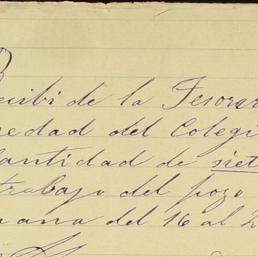 Recibi de la Tesorer
edad del Colegi
cantidad de siet
trabajo del pozo
ana del 16 al 2